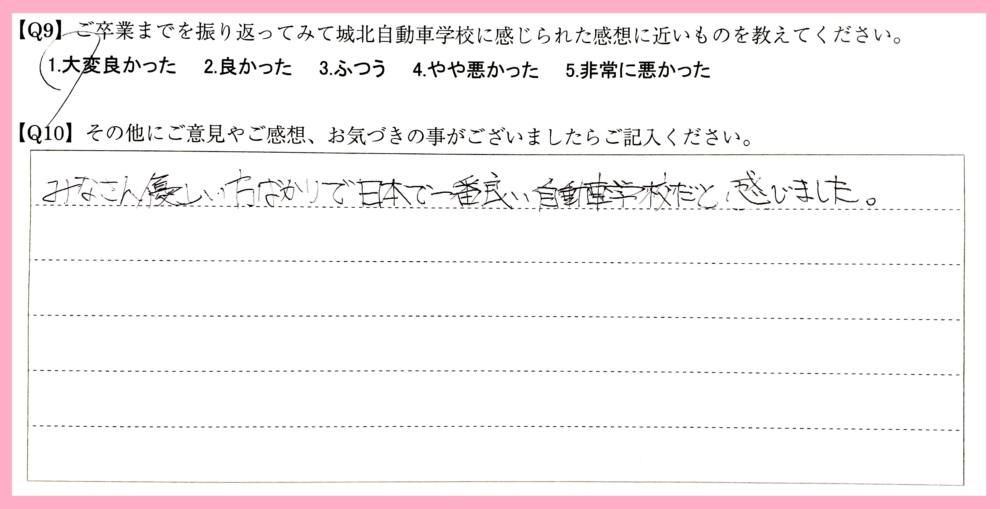 【Q9】ご卒業までを振り返ってみて城北自動車学校に感じられた感想に近いものを教えてください。
1.大変良かった 2.良かった 3.ふつう 4.やや悪かった 5.非常に悪かった
【Q10】その他にご意見やご感想、お気づきの事がございましたらご記入ください。
みなさん優しい方ばかりで日本で一番良い自動車学校だと感じました。